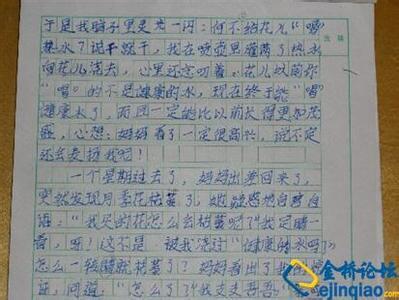 于是我脑子里灵光一闪：何不给花儿“喝”
热水？说干就干，我在喷壶里灌满了热水
向花儿浇去，心里还念叨着：花儿以前你
“喝”的不是健康的水，现在终于能“喝”
健康水了，而且一定会比以前长得更加茂
盛，心想：妈妈看了一定很高兴，说不定
还会表扬我呢！
一个星期过去了，妈妈出差回来了，
突然发现月季花枯萎了，她疑惑地自言自
语：“我买的花怎么会枯萎呢？我定睛一
看，呀！这不是被我浇过“健康的水吗”
怎么一转睛就枯萎了？妈妈看出了我的
证，问道：“怎么了？我支支吾吾
金桥论坛
ejinqiao.com